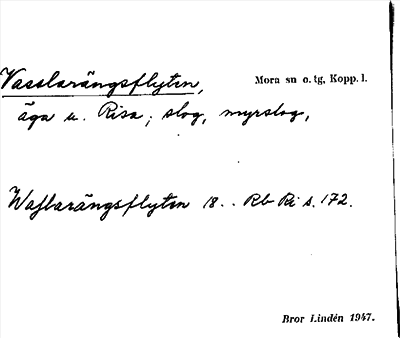 Vasslarängsflyten, Mora sn o. tg, Kopp. l.
äga u. Risa; slog, myrslog,
Waslarängsflyten 18 . . Rb Ri s. 172.
Bror Lindén 1947.